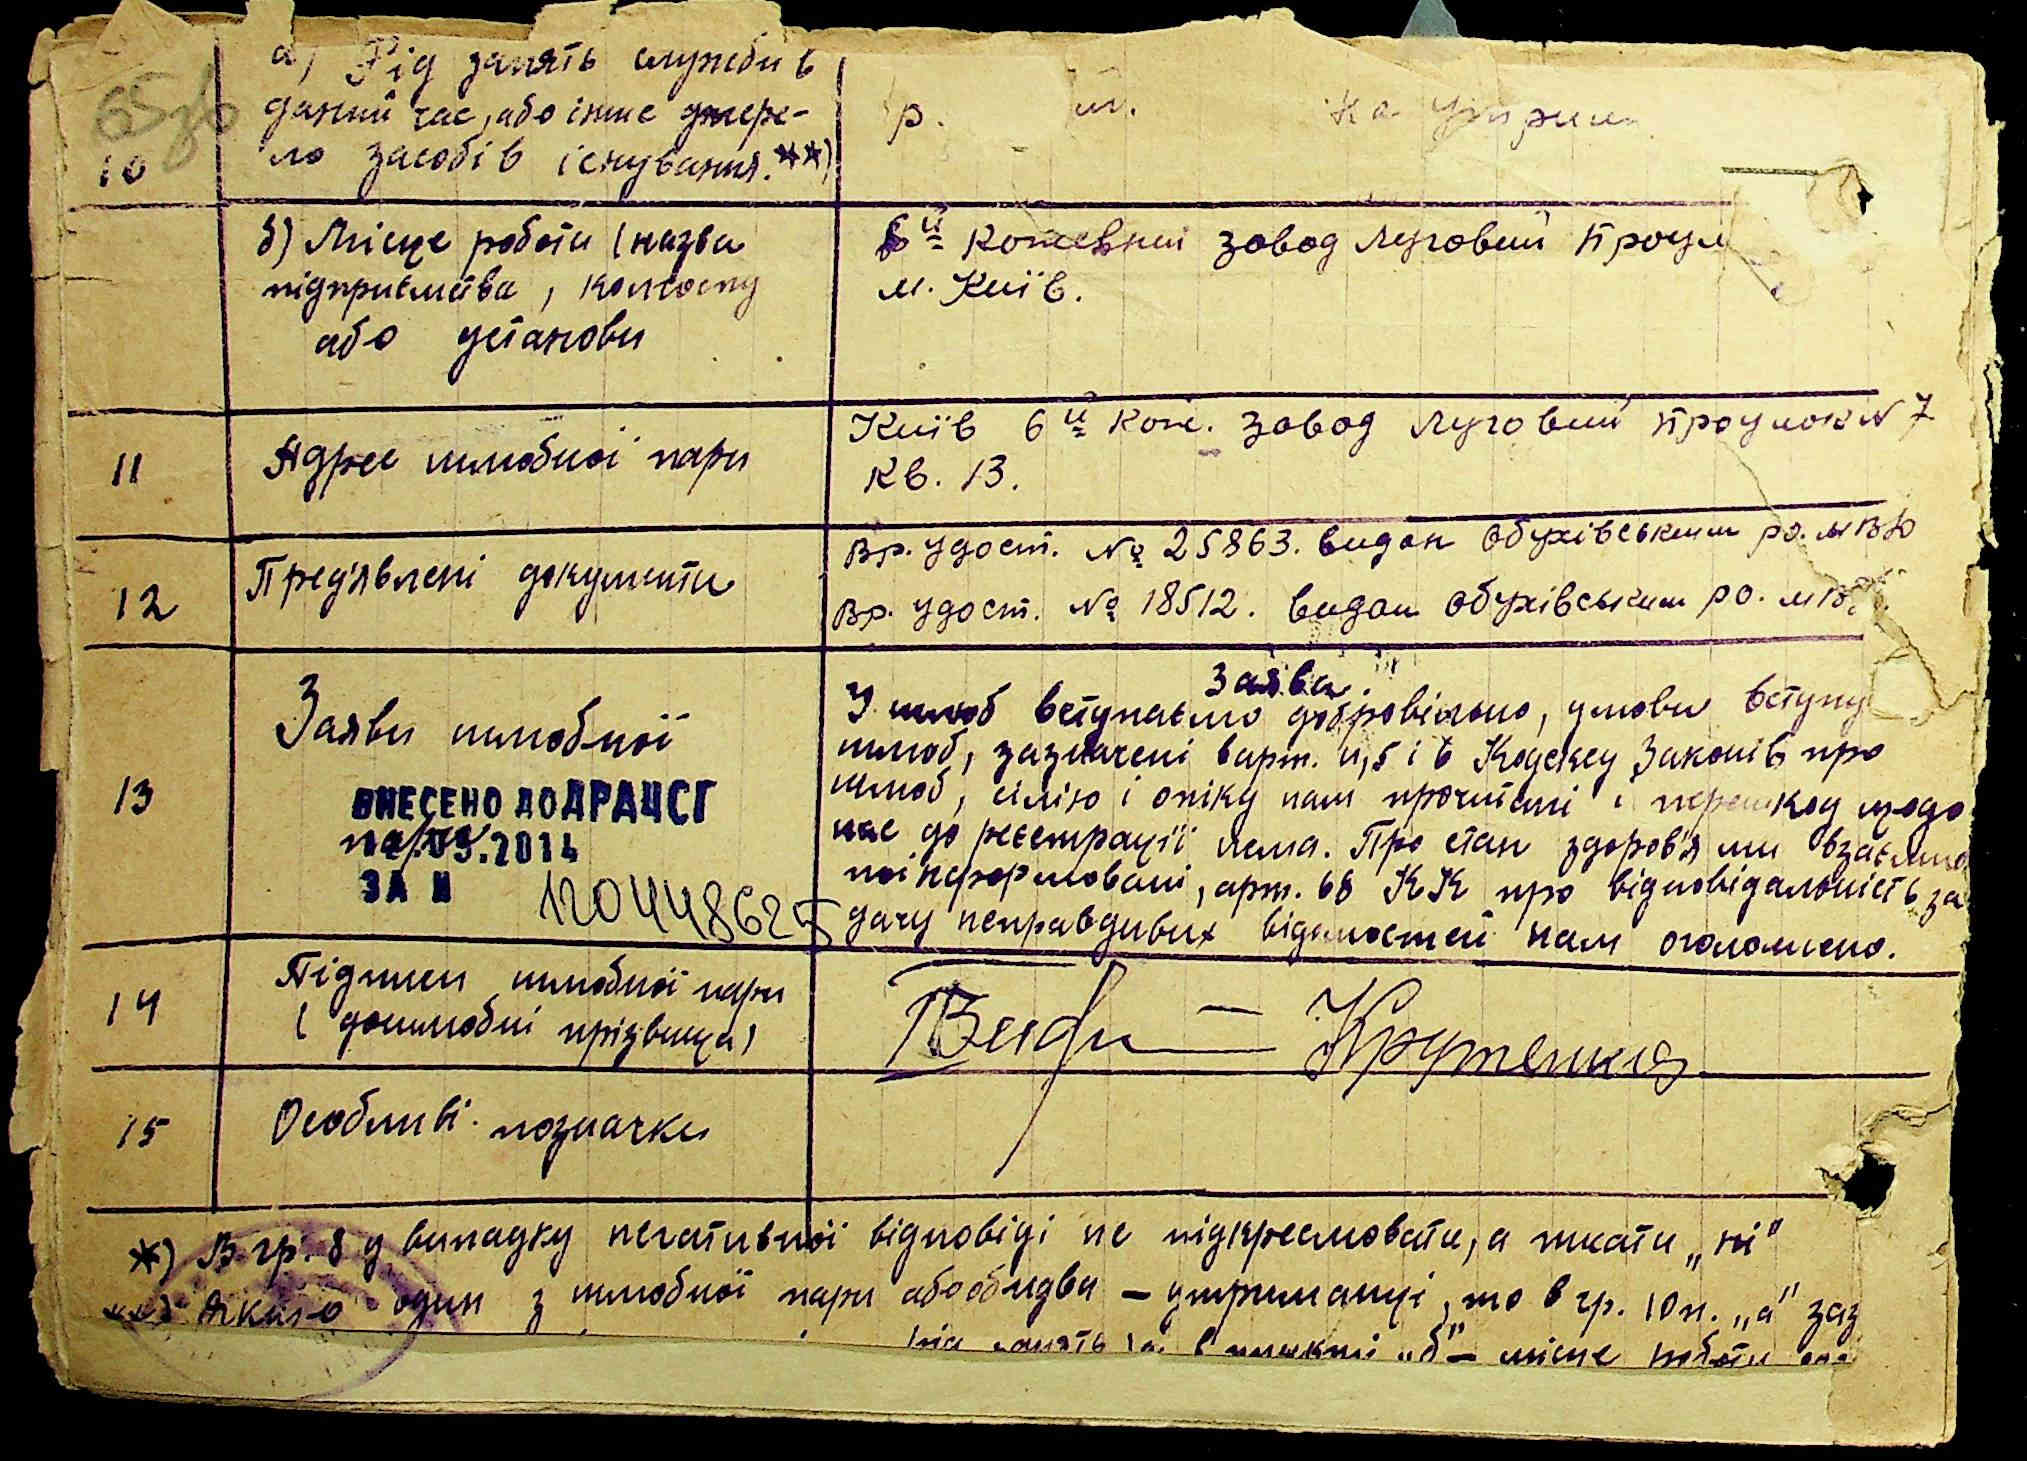 65зв
10
а) Рід занять служби в
даний час, або інше джере-
ло засобів існування. **)
б) Місце роботи (назва
підприємства, колгоспу
або установи
6й Кожевний завод Луговий
м. Київ.
11
Адрес шлюбної пари
Київ 6й Кож. завод Луговий проулок N 7
кв. 13.
12
Пред'явлені документи
Вр. удост. № 25863. видан Обухівським ро.
Вр. удост. № 18512. видан Обухівським ро.
13
Заяви шлюбної
ВНЕСЕНО ДО ДРАЦСГ
.2014
ЗА №
Заява
У шлюб вступаємо добровільно, умови вступу
шлюб, зазначені в арт. 4, 5 і 6 Кодексу Законів про
шлюб, сім'ю і опіку нам прочитані і перешкод щодо
нас до реєстрації нема. Про стан здоров'я ми взаємно
поінформовані, арт. 68 КК про відповідальність за
дачу неправдивих відомостей нам оголошено.
14
Підписи шлюбної пари
(дошлюбні прізвища)
15
Особливі позначки
*) В гр. 8 у випадку негативної відповіді не підкреслювати, а писати „ні"
**) Якщо один з шлюбної пари або обидва – утриманці, то в гр. 10 п. „а" заз
рід занять в пункті „б" – місце роботи